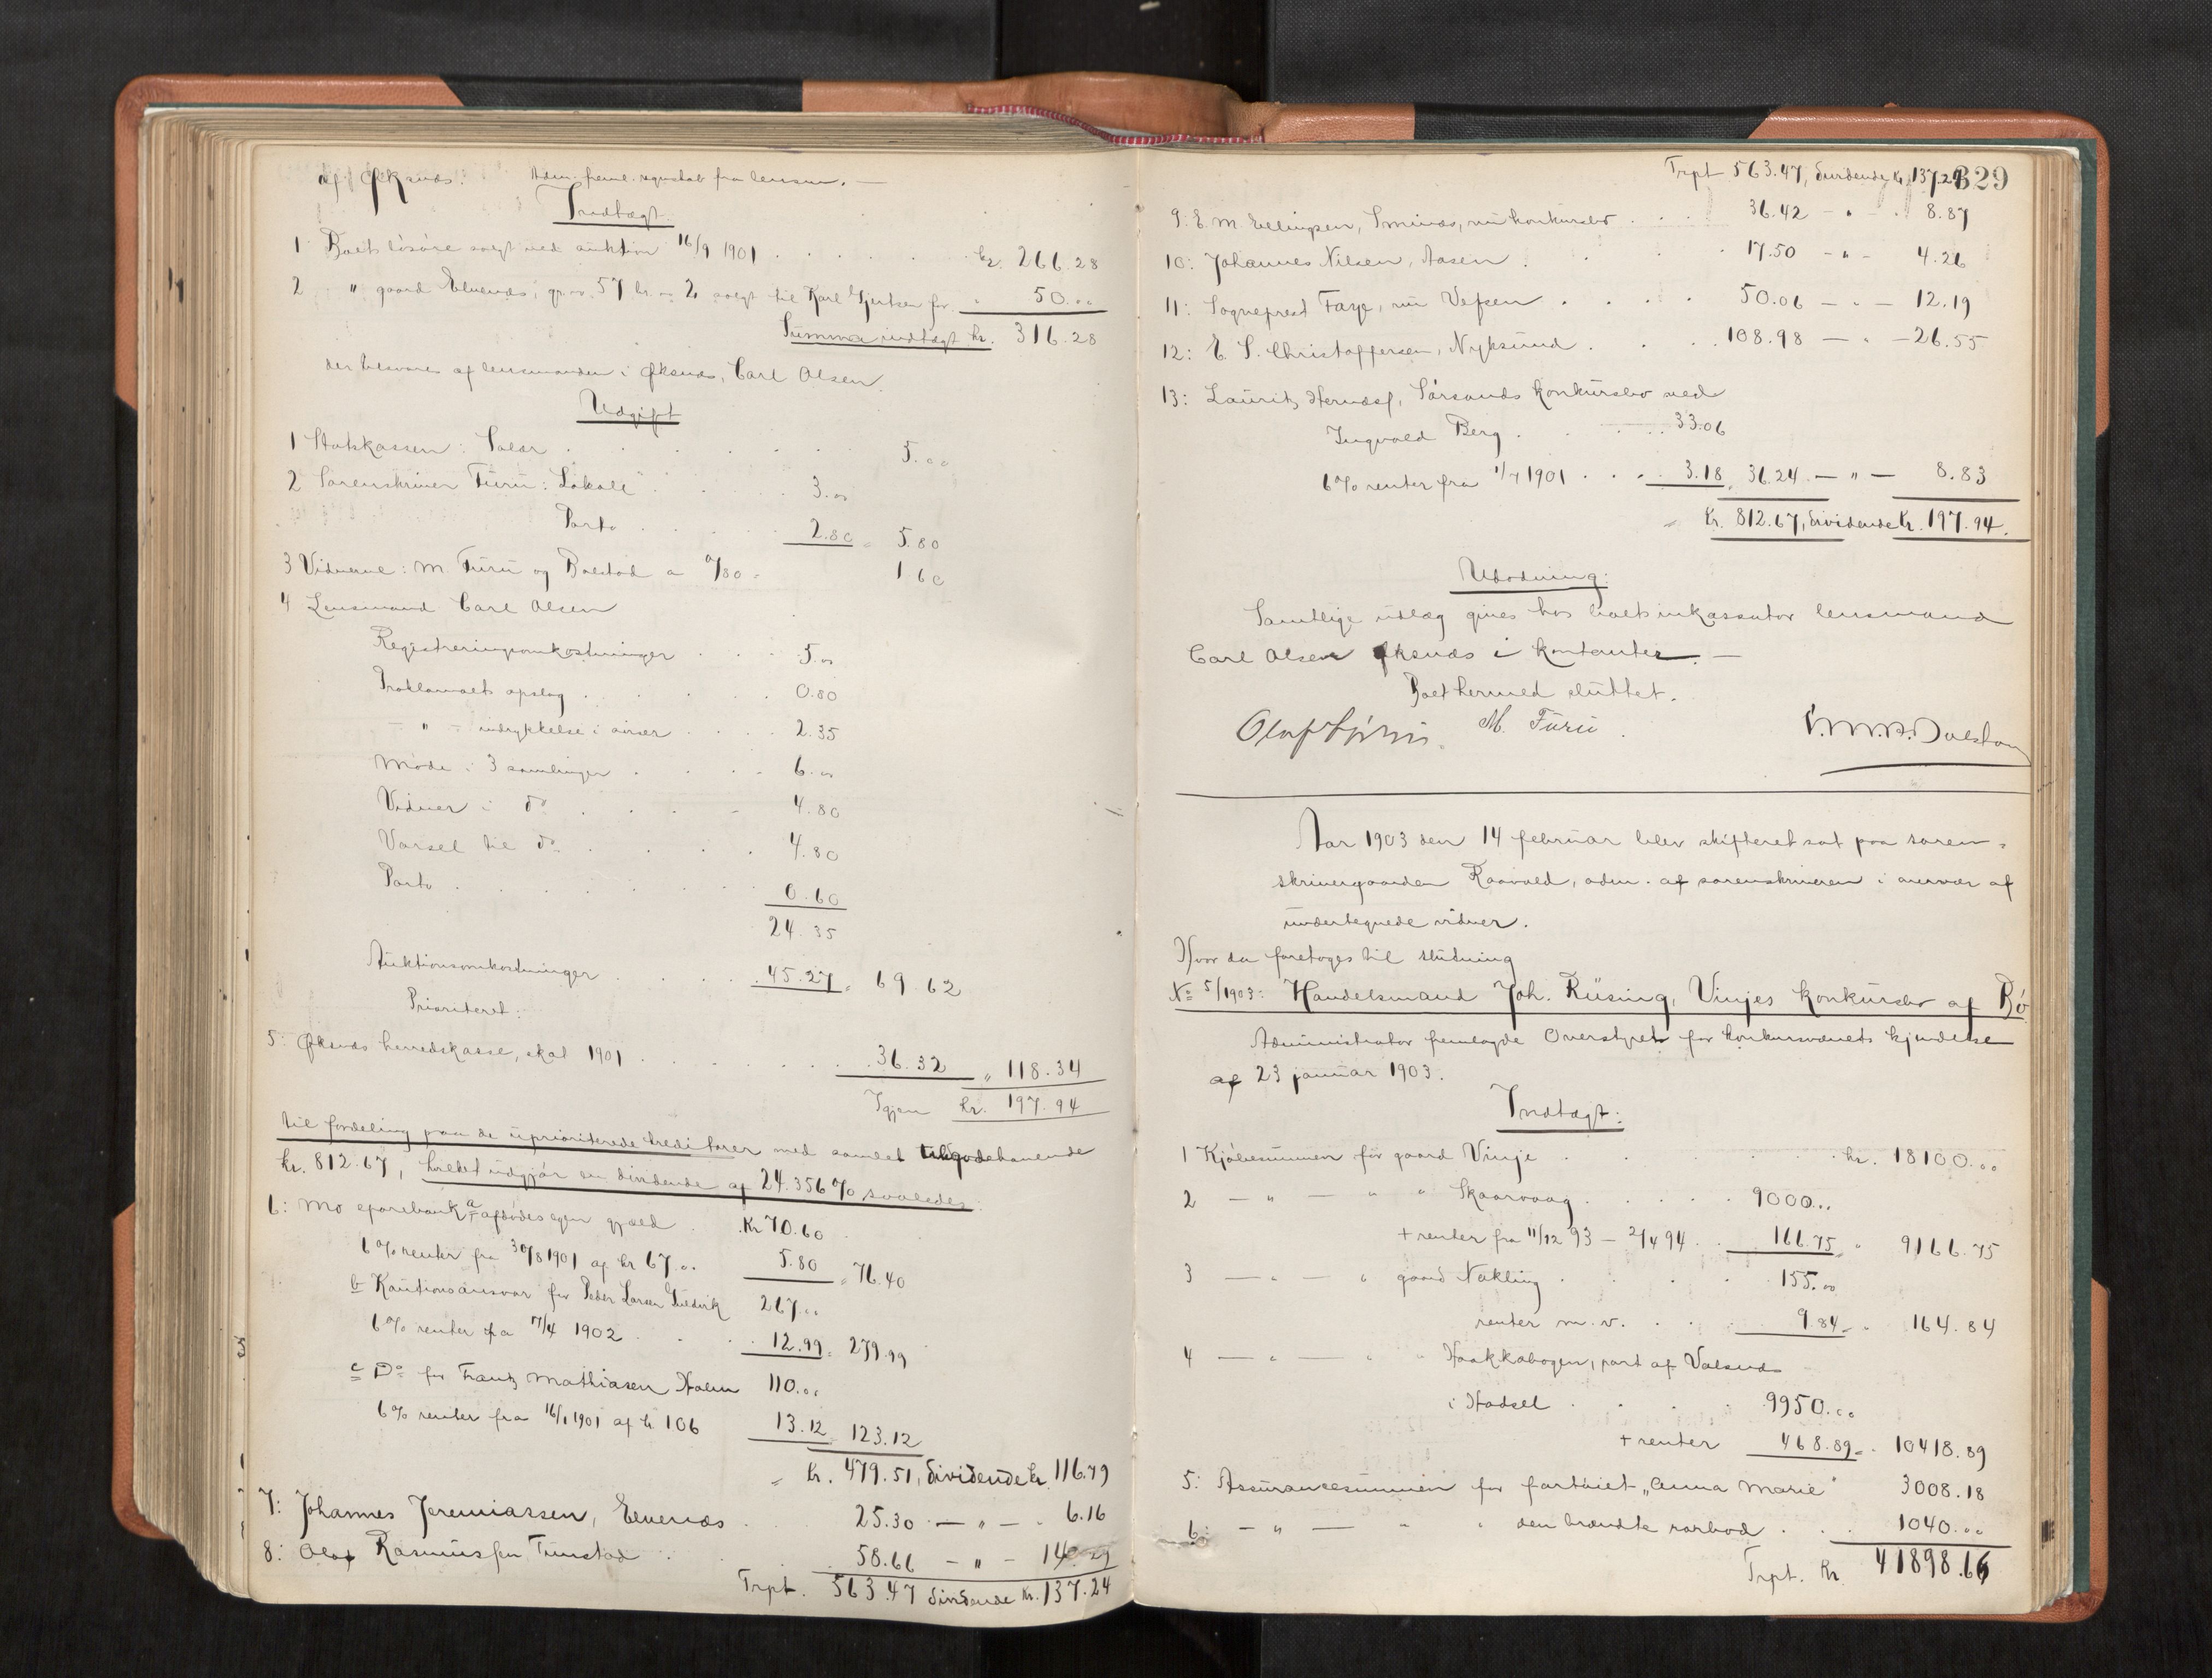 af Øksnæs. Adm. freml. regnskab fra lensm. —
Indtægt.
1 Boets løsøre solgt ved auktion 16/9 1901 . . . . . kr. 266.28
2 " gaard Elvenæs, gr. no. 57 br. no 2, solgt til Karl Gjertsen for " 50.00
Summa indtægt kr. 316.28
der besvares af lensmanden i Øksnæs, Carl Olsen.
Udgift
1 Statskassen: Salær . . . . . . 5.00
2 Sorenskriver Furu: Lokale . . . 3.00
Porto . . . . 2.80 = 5.80
3 Vidnerne: M. Furu og Bolstad a 0/80 = 1 60
4 Lensmand Carl Olsen
Registreringsomkostninger . . . 5.00
Proklamaets opslag . . . . . 0.80
— " — indrykkelse i aviser . . . . 2.35
Møde i 3 samlinger . . . . 6.00
Vidner i do . . . . 4.80
Varsel til do . . . . 4.80
Porto . . . . . . 0.60
24.35
Auktionsomkostninger . . . . 45.27 = 69.62
Prioriteret:
5: Øksnæs herredskasse, skat 1901 . . . . . . 36.32 " 118.34
Igjen kr. 197.94
til fordeling paa de uprioriterede kreditorer med samlet tilgodehavende
kr. 812.67, hvilket udgjør en dividende af 24.356 % saaledes:
6: Mo sparebank a afdødes egen gjæld . Kr 70.60
6 % renter fra 30/8 1901 af kr 67.00 5.80 = 76.40
b Kautionsansvar for Peder Larsen 267.00
6 % renter fra 17/4 1902 . . . 12.99 = 279.99
c Do for Frantz Mathiasen Holm 110.00
6 % renter fra 16/1 1901 af kr 106 13.12 123.12
= Kr. 479.51, dividende kr 116.79
7: Johannes Jeremiassen, Elvenæs . 25.30 — " — . 6.16
8: Olaf Rasmussen Tunstad . . . 58.66 — " — 14.29
Trpt. 563.47 dividende Kr. 137.24
Trpt 563.47, dividende kr. 137.24
329
9: E. M. Ellingsen, Smines, nu konkursbo . . . 36.42 — " — . 8.87
10: Johannes Nilsen, Aasen . . . . 17.50 — " — 4.26
11: Sogneprest Faye, nu Vefsen . . . . 50.06 — " — 12.19
12: E. S. Christoffersen, Nyksund . . . . 108.98 — " — 26.55
13: Lauritz Hernæs, Sørsands konkursbo ved
Ingvald Berg . . . . . 33.06
6 % renter fra 1/7 1901 . . . 3.18 36.24 — " — 8.83
= Kr. 812.67, dividende kr. 197.94.
Udlodning:
Samtlige udlæg gives hos boets inkassator lensmand
Carl Olsen Øksnæs i kontanter. —
Boet hermed sluttet.
M. Furu .
Aar 1903 den 14 februar blev skifteret sat paa soren-
skrivergaarden Raavold, adm. af sorenskriveren i overvær af
undertegnede vidner.
Hvor da foretoges til slutning
No 5/1903: Handelsmand Joh. Rüsing, Vinjes konkursbo af Bø
Administrator fremlagde Overstyret for konkursvæsenets kjendelse
af 23 januar 1903.
Indtægt:
1 Kjøbesummen for gaard Vinje . . . . . kr. 18100.00
2 — " — " " Skaarvaag . . . . . 9000.00
+ renter fra 11/12 93 — 2/4 94 . . 166.75 " 9166.75
3 — " — " gaard Nykling . . . . 155.00
renter m. v. . . . 9.84 = . 164.84
4 — " — " " Haakkabogen, part af Valsnæs
i Hadsel . . . . . 9950.00
+ renter 468.89 = . 10418.89
5: Assurancesummen for fartøiet "Anna Marie" 3008.18
6: — " — " " den brændte rorbod . . . 1040.00
Trpt. Kr. 41898.66